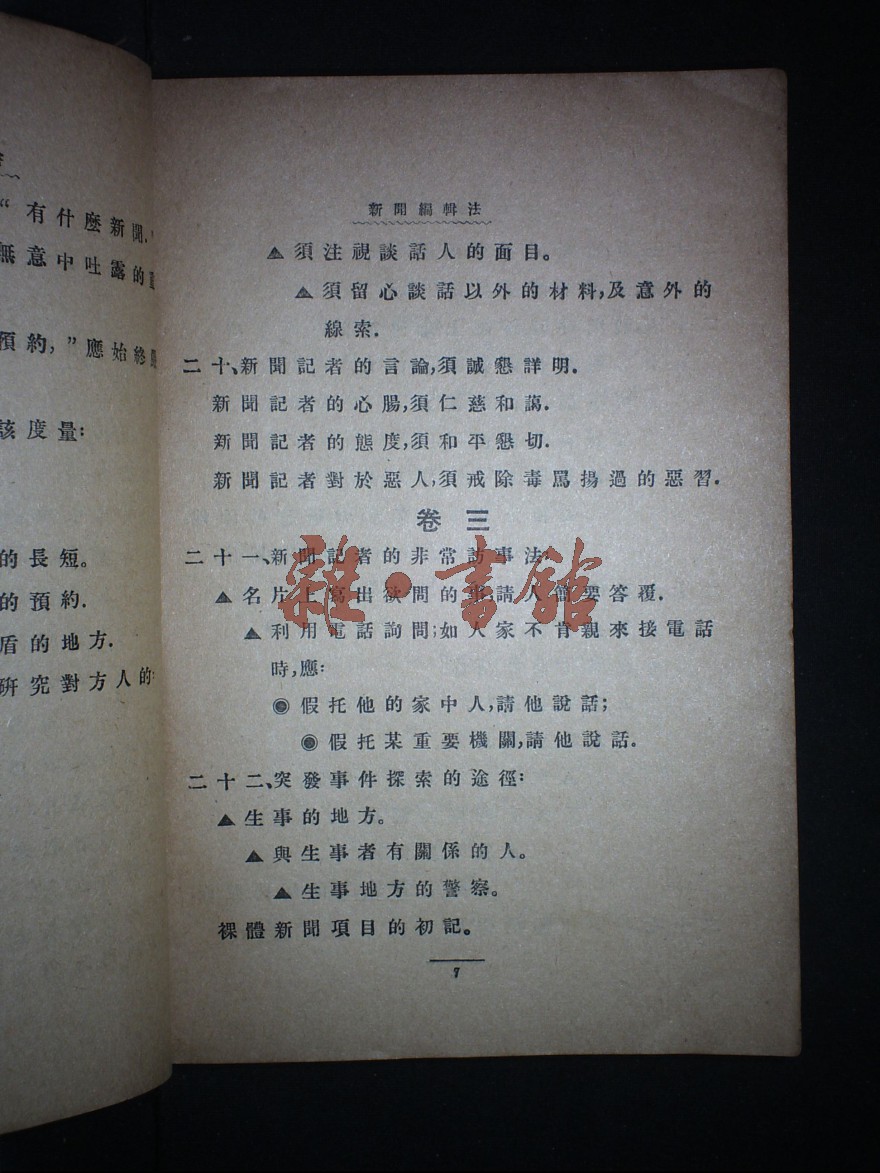 “有什麼新聞.
無意中吐露的
預約,”應始終
該度量:
的長短。
的預約.
盾的地方.
研究對方人的
新聞編輯法
▲須注視談話人的面目。
▲須留心談話以外的材料,及意外的
線索.
二十、新聞記者的言論,須誠懇詳明.
新聞記者的心腸,須仁慈和藹.
新聞記者的態度,須和平懇切.
新聞記者對於惡人,須戒除毒罵揚過的惡習.
卷三
二十一、新聞記者的非常訪事法:
▲名片上寫出欲問的事,請人簡要答覆.
▲利用電話詢問;如人家不肯親來接電話
時,應:
◉假托他的家中人,請他說話;
◉假托某重要機關,請他說話.
二十二、突發事件探索的途徑:
▲生事的地方。
▲與生事者有關係的人。
▲生事地方的警察。
裸體新聞項目的初記。
7
雜·書館